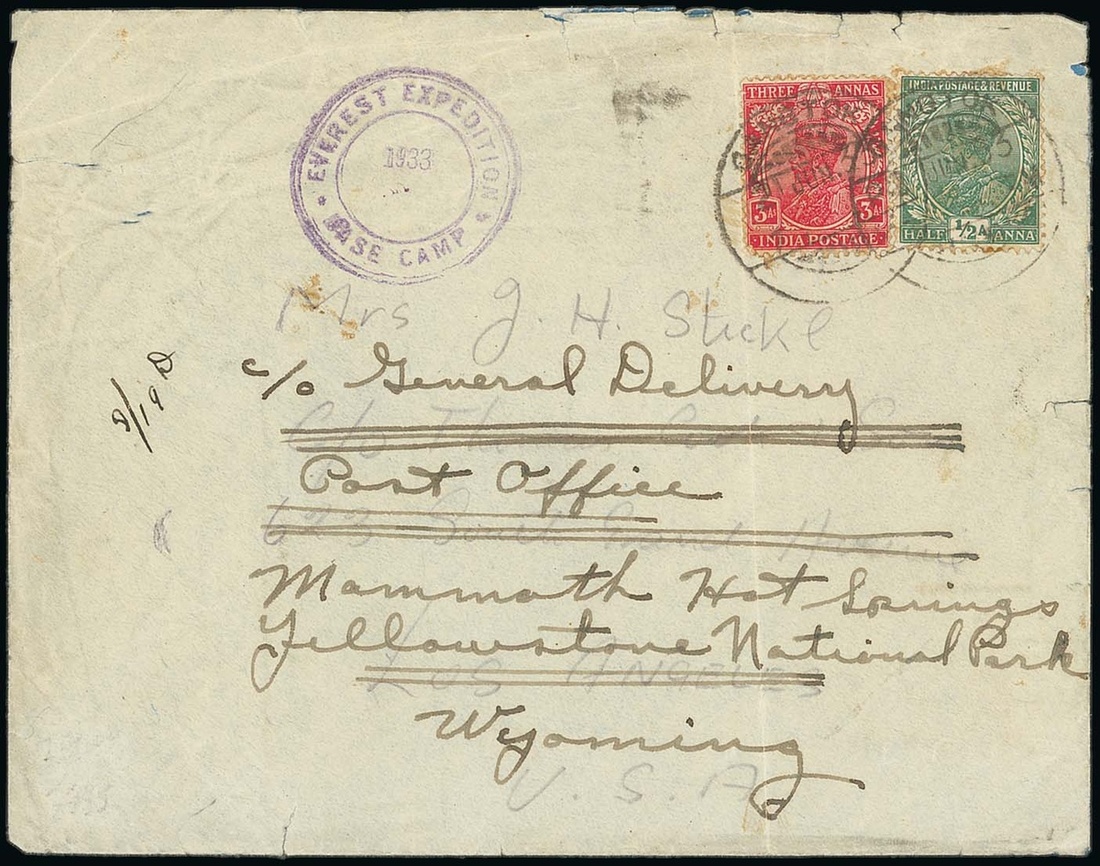 EVEREST EXPEDITION
1933
BASE CAMP
THREE ANNAS
3As 3As
INDIA POSTAGE
INDIA POSTAGE & REVENUE
HALF 1/2A ANNA
Mrs J. H. Stickl
c/o General Delivery
C/o
Post Office
623 South Grand
Mammoth Hot Springs
Yellowstone National Park
Los Angeles
Wyoming
U. S. A.